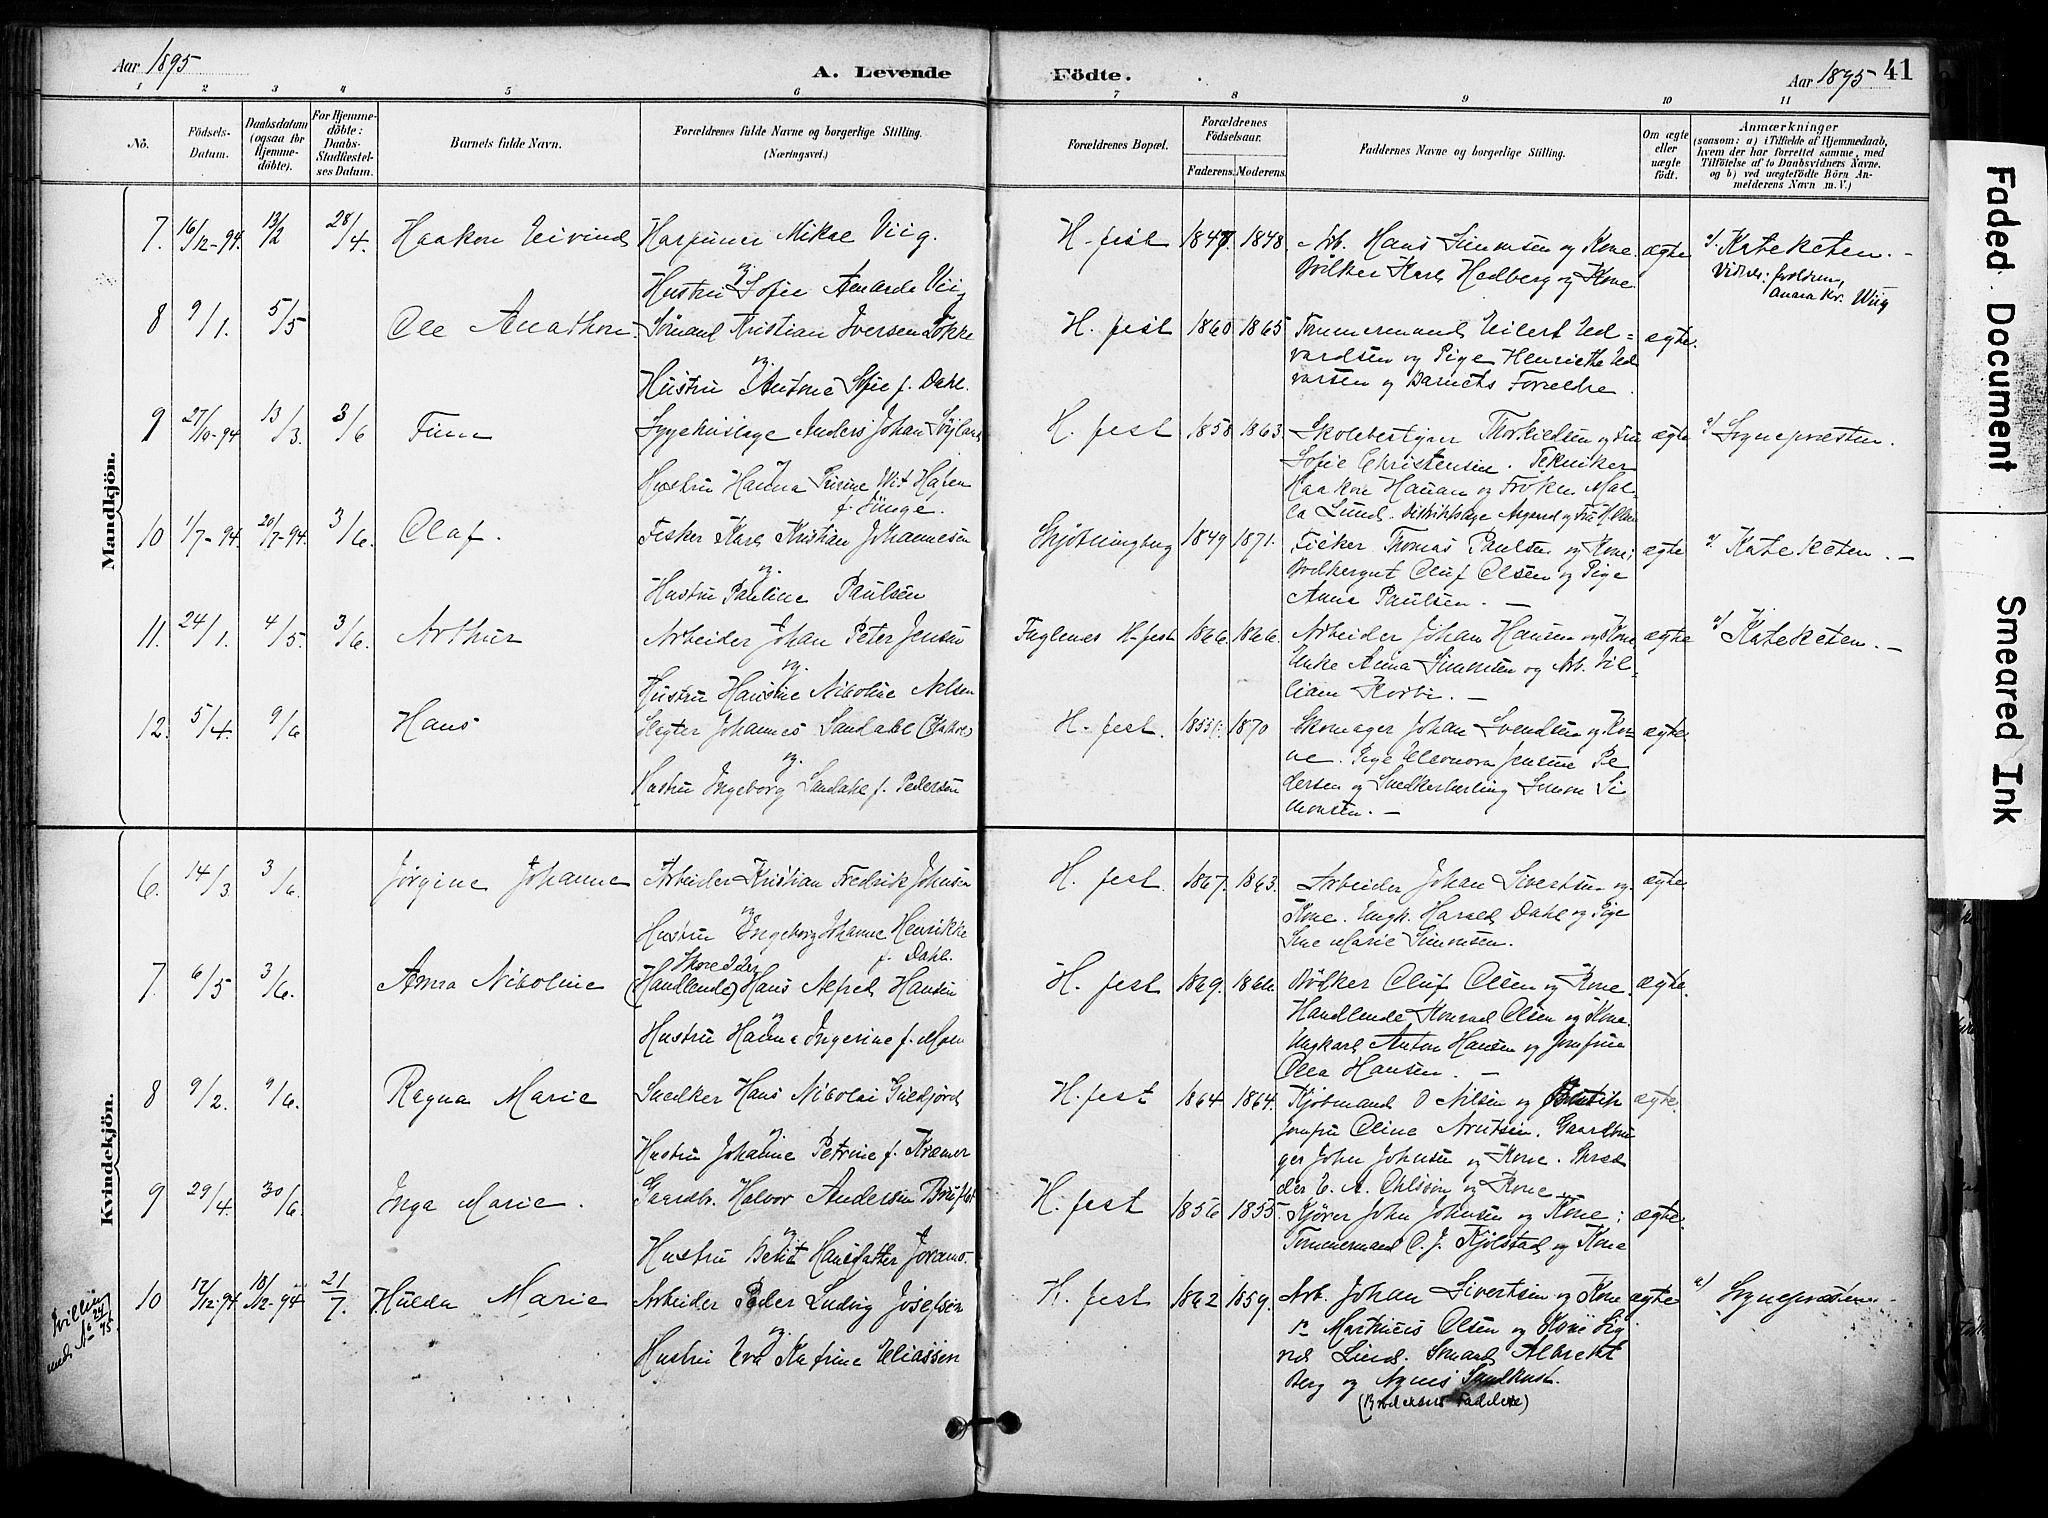 Aar 1895
A. Levende
Födte.
Aar 1895
41
1 2 3 4 5 6 7 8 9 10 11
No.
Födsels-
Datum.
Daabsdatum
(ogsaa for
Hjemme-
döbte).
For Hjemme-
döbte:
Daabs-
Stadfæstel-
ses Datum.
Barnets fulde Navn.
Forældrenes fulde Navne og borgerlige Stilling.
(Næringsvei.)
Forældrenes Bopæl.
Forældrenes
Födselsaar.
Faderens. Moderens.
Faddernes Navne og borgerlige Stilling.
Om ægte
eller
uægte
födt.
Anmærkninger
(saasom: a) i Tilfælde af Hjemmedaab,
hvem der har forrettet samme, med
Tilföielse af to Daabsvidners Navne,
og b) ved uægtefödte Börn An-
melderens Navn m. V.)
Mandkjön.
7. 16/12-94. 13/2 28/4. Haakon Eivind Harpuner Mikal Viig.
og
Hustru Sofie Amanda Viig
H. fest 1847. 1848. Arb. Hans Simonsen og Kone.
Bölker Karl Hedberg og Kone
ægte
a/. Kateketen. -
Vidner: forældrene,
Anna Kr. Wiig
8 9/1. 5/5 Ole Anathon. Sömand Kristian Iversen Lökke
og
Hustru Antona Sofie f. Dahl.
H. fest 1860 1865 Tømmermand Eilert Ed=
vardsen og Pige Henriette Ed
varsen og Barnets Forældre.
ægte.
9 27/10-94 13/3. 3/6 Finn Sygehuslæge Anders Johan
og
Hustru Hanna
f. Sünge.
H. fest 1858 1863. Skolebestyrer Thorkildsen og Fru
Sofie Christensen. Tekniker
Haakon Hanan og Frøken Mal-
la Lund. Distriktslæge
ægte
a/ Sognepræsten.
10 1/7-94. 20/7-94. 3/6. Olaf. Fisker Karl Kristian Johannesen
og.
Hustru Pauline Paulsen
1849 1871. Fisker Thomas Paulsen og Kone;
Bölkergut Oluf Olsen og Pige
Anna Paulsen. -
ægte
a/. Kateketen. -
11. 24/1. 4/5. 3/6. Arthur Arbeider Johan Peter Jensen
og.
Hustru Hansine Nikoline Nilsen
Fuglenes H. fest 1866. 1866. Arbeider Johan Hansen og Kone
Enke Anna Simonsen og Arb. Vil-
liam -
ægte
a/ Kateketen. -
12. 5/4. 9/6 Hans Slagter Johannes Sandahl
og.
Hustru Ingeborg Sandahl f. Pedersen
H. fest. 1870 Skomager Johan Svendsen og Ko-
ne. Pige Eleonora Jensine Pe
dersen og Snedkerlærling Simon Si
monsen. -
ægte.
Kvindekjön.
6. 14/3 3/6. Jörgine Johanne Arbeider Kristian Fredrik Johnsen
og
Hustru Ingeborg Johanne Henrikke
f. Dahl.
H. fest. 1867. 1863. Arbeider Johan Sivertsen og
Kone. Ungk. Harald Dahl og Pige
Sine Marie Simonsen.
ægte.
7. 6/5 3/6. Anna Nikoline Skredder
(Handlende) Hans Alfred Hansen
og
Hustru Hanna Ingerine f. Moen
H. fest 1869. 1866. Bölker Oluf Olsen og Kone.
Handlende Konrad Olsen og Kone.
Ungkarl Anton Hansen og Jomfrue
Olea Hansen. -
ægte.
8 9/2. 9/6. Ragna Marie Snedker Hans Nikolai Guldjord
og
Hustru Johanne Petrine f. Kræmer
H. fest 1864 1864. Kjøbmand O Nilsen og Butik
jomfru Oline Arntsen. Gaardbru
ger John Johnsen og Kone. Skred
der E. A. Ohlson og Kone
ægte.
9 29/4. 30/6. Inga Marie. Gaardbr. Halvor Andersen
og
Hustru Berit Hansdatter
H. fest 1856 1855. Kjörer John Johnsen og Kone;
Tømmermand O. J. Kjölstad og Kone
ægte.
Tvilling
med No 24/95.
10 17/12-94. 18/12-94 21/7. Hulda Marie Arbeider Peder Ludvig Josefsen
og
Hustru Eva Katrine Eliassen
H. fest 1862 1859. Arb. Johan Sivertsen og Kone
" Marthinus Olsen og Kone Sig
rid Lund. Smed Albrekt
Berg og Agnes Sandkust.
(Broderens Faddere)
ægte
a/ Sognepræsten
Faded Document
Smeared Ink